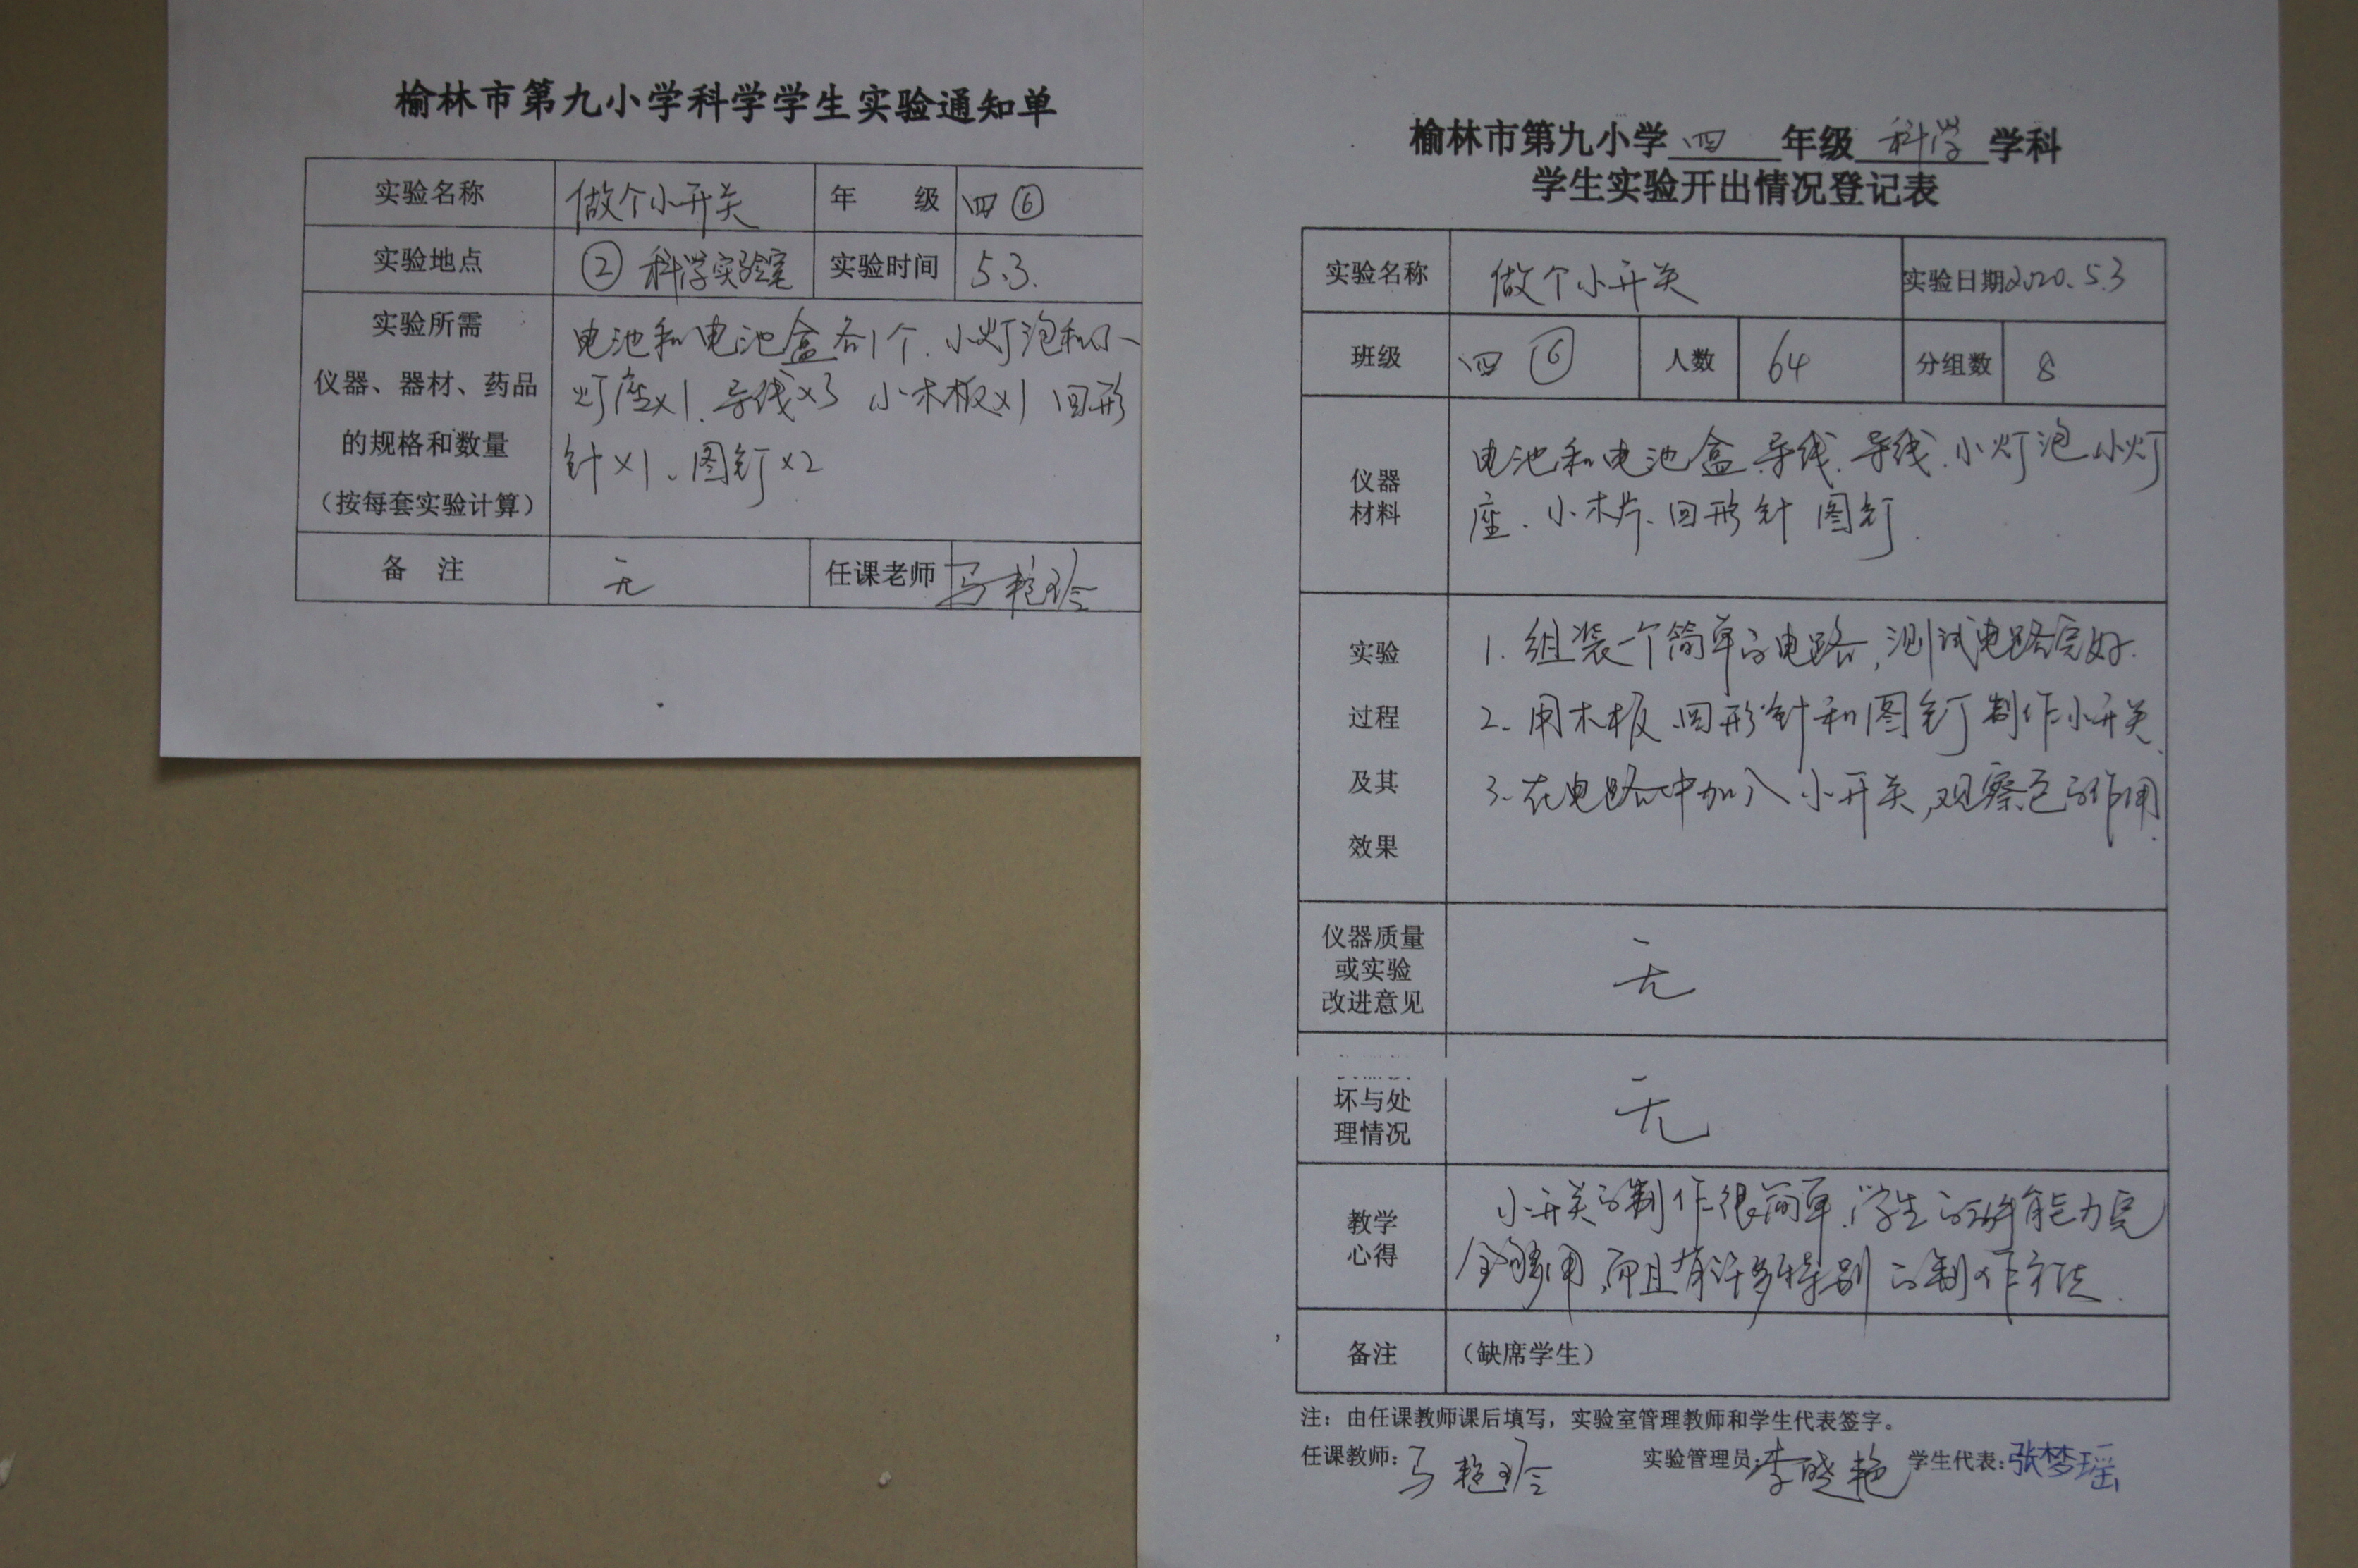 榆林市第九小学科学学生实验通知单
实验名称 做个小开关 年 级 四⑥
实验地点 ②科学实验室 实验时间 5.3.
实验所需
仪器、器材、药品
的规格和数量
（按每套实验计算）
电池和电池盒各1个、小灯泡和小
灯座×1、导线×3 小木板×1 回形
针×1、图钉×2
备 注 无 任课老师 马艳玲
榆林市第九小学 四 年级 科学 学科
学生实验开出情况登记表
实验名称 做个小开关 实验日期2020.5.3
班级 四⑥ 人数 64 分组数 8
仪器
材料
电池和电池盒、导线、导线、小灯泡 小灯
座、小木片、回形针 图钉.
实验
过程
及其
效果
1. 组装一个简单的电路,测试电路完好.
2. 用木板、回形针和图钉制作小开关、
3. 在电路中加入小开关,观察它的作用.
仪器质量
或实验
改进意见
无
坏与处
理情况
无
教学
心得
小开关的制作很简单.学生的 能力完
全够用,而且有许多特别的制作方法.
备注 （缺席学生）
注：由任课教师课后填写，实验室管理教师和学生代表签字。
任课教师：马艳玲 实验管理员：李晓艳 学生代表：张梦瑶